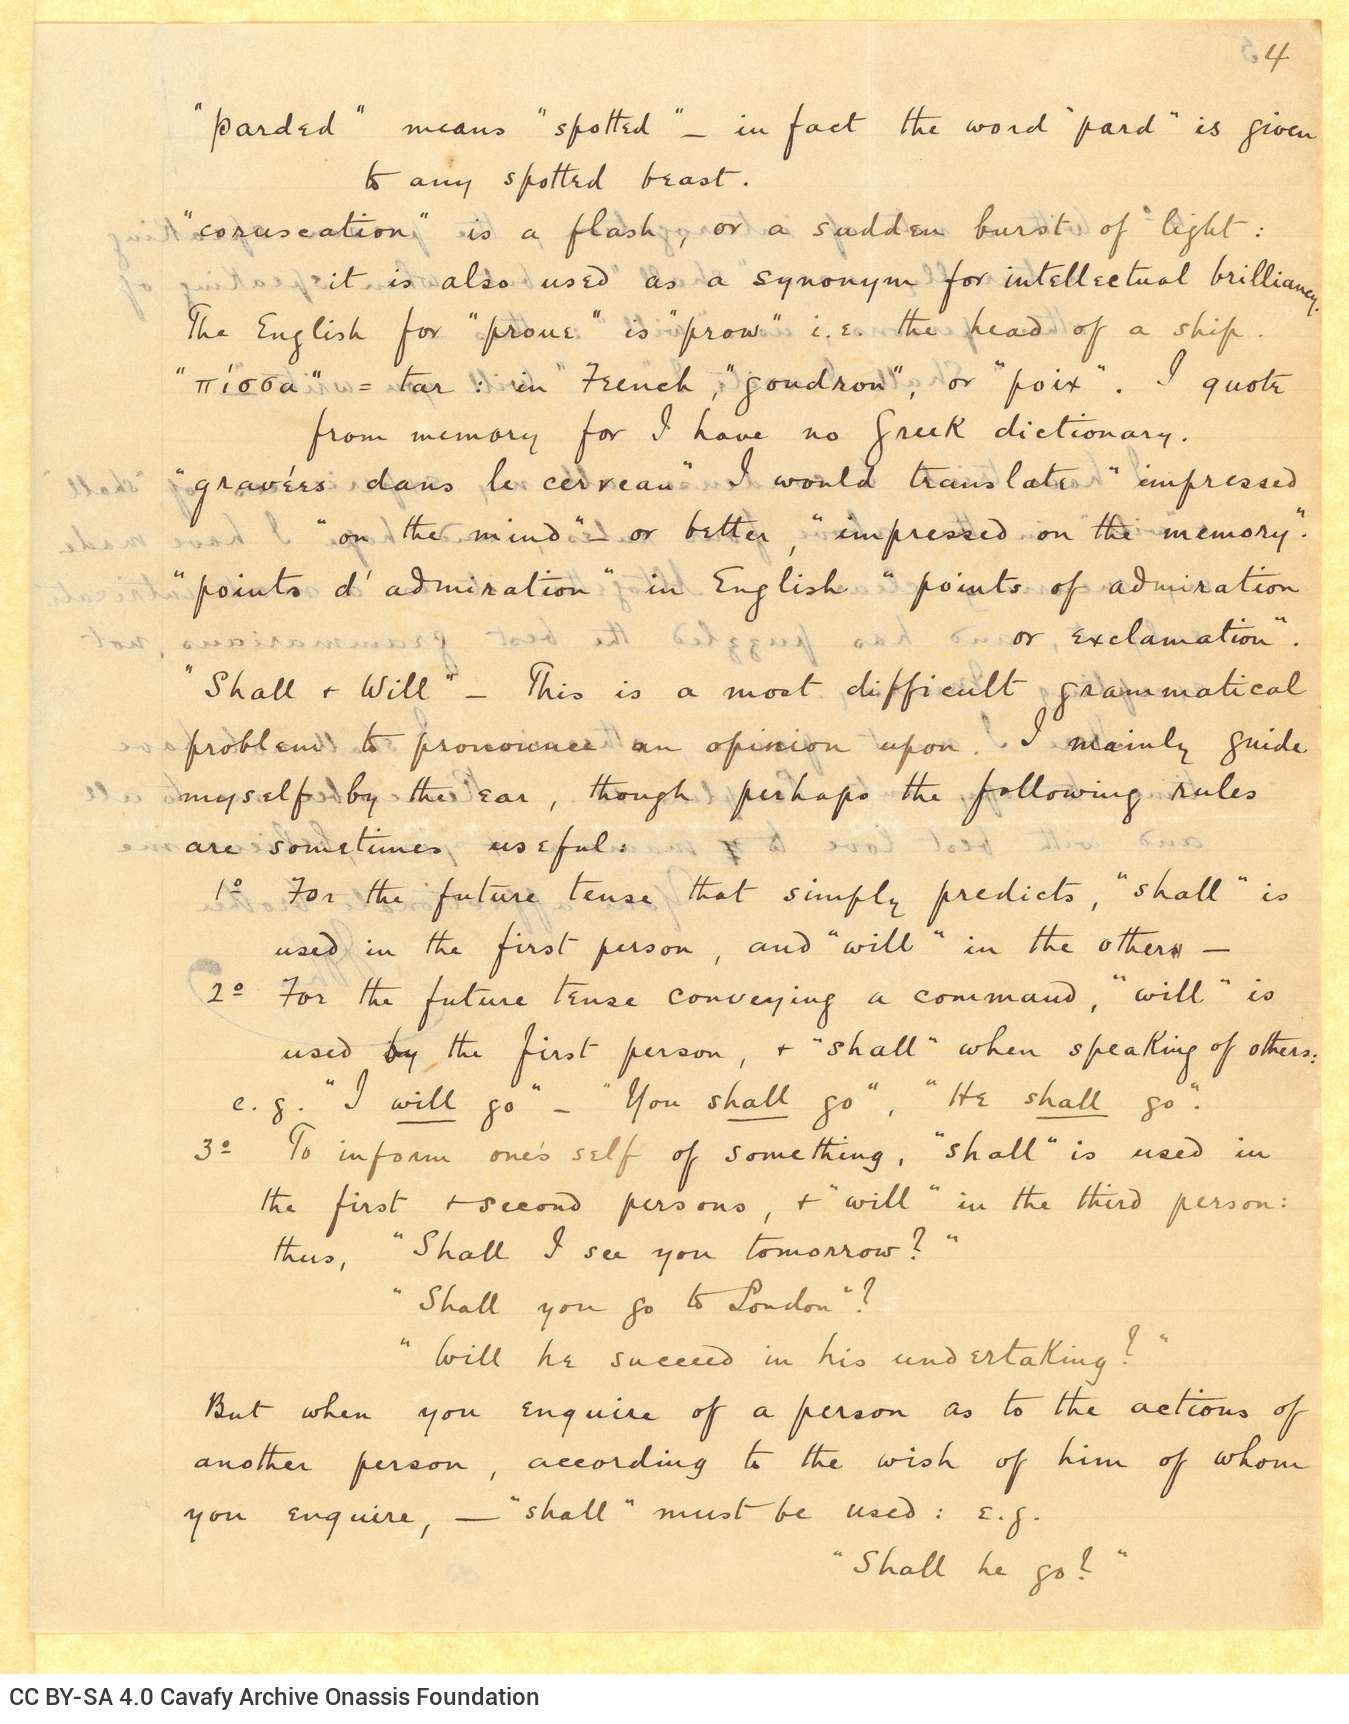 4
"parded" means "spotted" — in fact the word "pard" is given
to any spotted beast.
"coruscation" is a flash, or a sudden burst of light:
it is also used as a synonym for intellectual brilliancy.
The English for "proue" is "prow" i.e. the head of a ship.
"πίσσα" = tar: in French, "goudron", or "poix". I quote
from memory for I have no Greek dictionary.
"gravées dans le cerveau" I would translate "impressed
"on the mind" — or better, "impressed on the memory".
"points d'admiration" in English "points of admiration
or exclamation".
"Shall + Will" — This is a most difficult grammatical
problem to pronounce an opinion upon. I mainly guide
myself by the ear, though perhaps the following rules
are sometimes useful:
1º For the future tense that simply predicts, "shall" is
used in the first person, and "will" in the other —
2º For the future tense conveying a command, "will" is
used by the first person, + "shall" when speaking of others:
e.g. "I will go" — "You shall go", "He shall go".
3º To inform one's self of something, "shall" is used in
the first + second persons, + "will" in the third person:
thus, "Shall I see you tomorrow?"
"Shall you go to London"?
"Will he succeed in his undertaking?"
But when you enquire of a person as to the actions of
another person, according to the wish of him of whom
you enquire, — "shall" must be used: e.g.
"Shall he go?"
CC BY-SA 4.0 Cavafy Archive Onassis Foundation